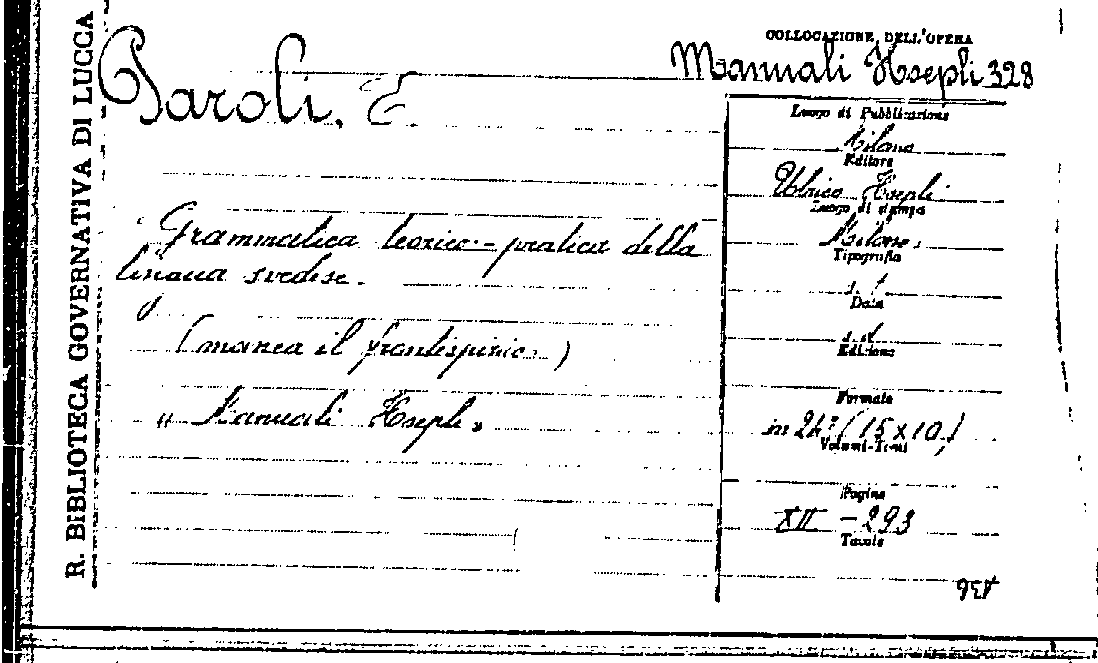 R. BIBLIOTECA GOVERNATIVA DI LUCCA
COLLOCAZIONE DELL'OPERA
Manuali Hoepli 328
Paroli, E.
Grammatica teorico-pratica della
lingua svedese.
(manca il frontespizio)
"Manuali Hoepli"
Luogo di Pubblicazione
Milano
Editore
Ulrico Hoepli
Luogo di stampa
Milano
Tipografia
Data
Edizione
Formato
in 24° (15x10)
Volumi-Tomi
Pagine
XII - 293
Tavole